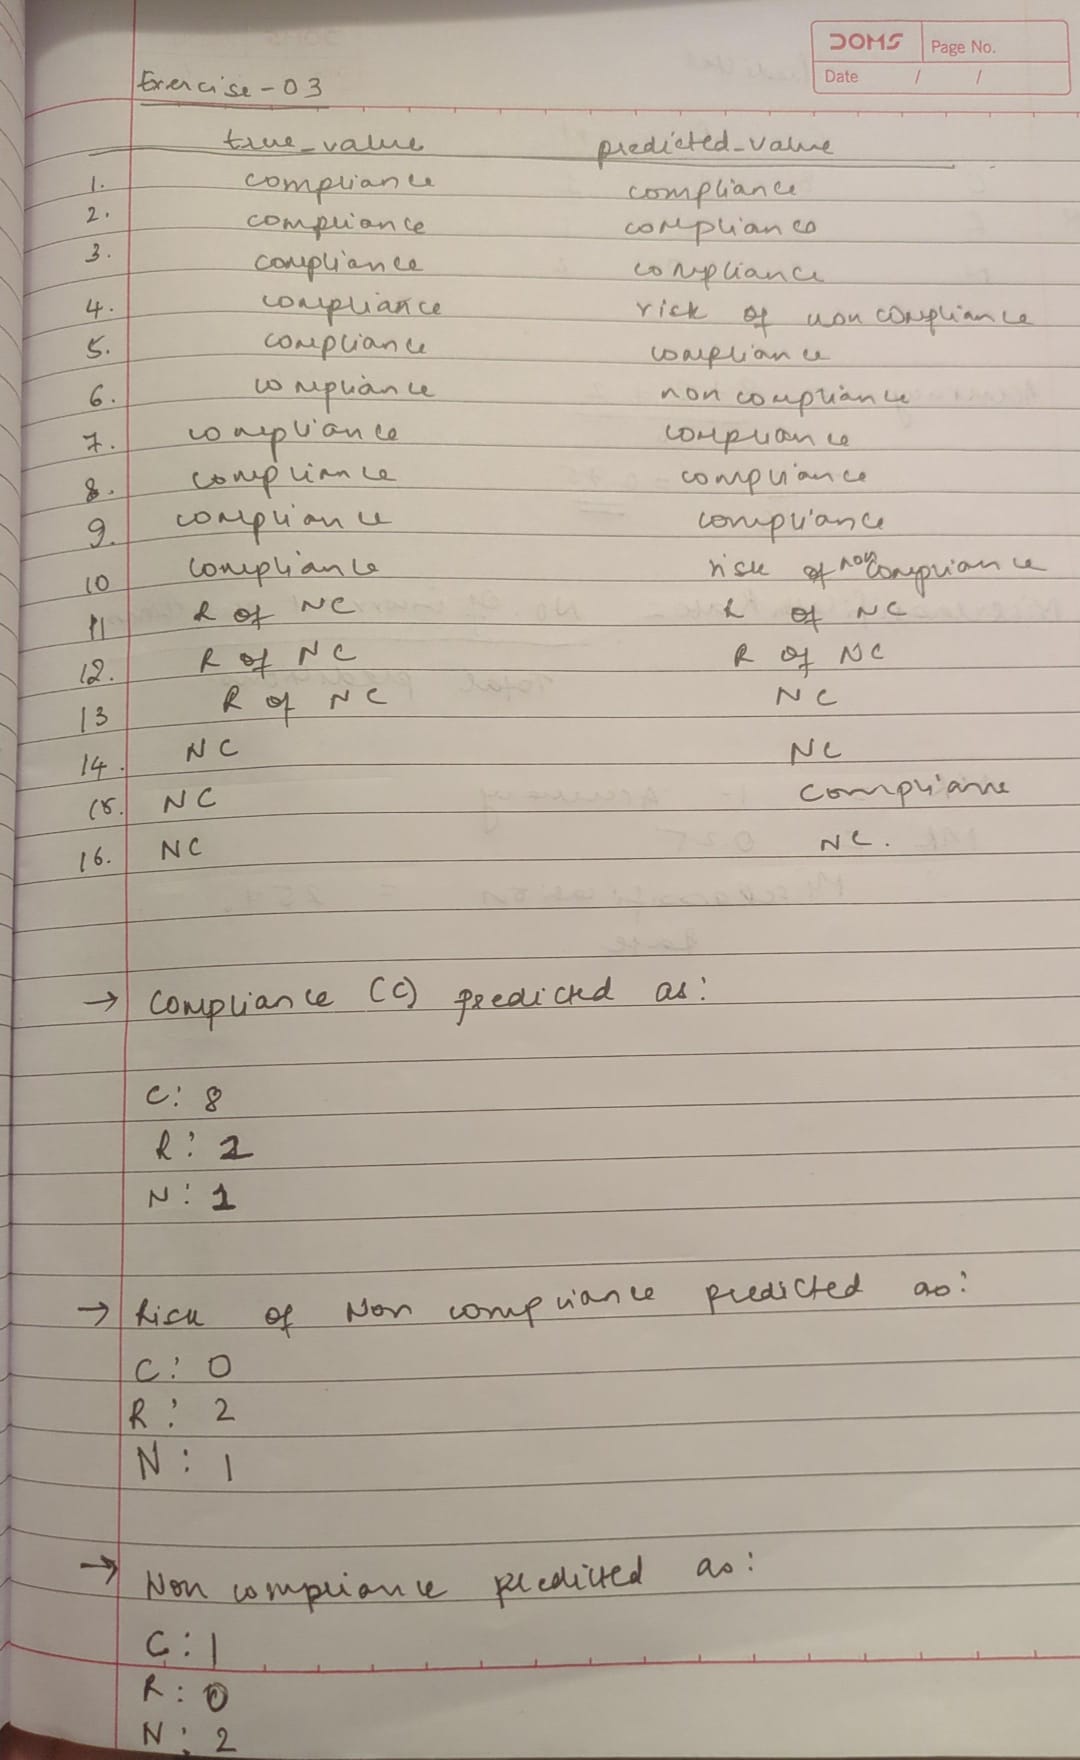 DOMS Page No.
Date / /
Exercise - 03
true_value predicted_value
1. compliance compliance
2. compliance compliance
3. compliance compliance
4. compliance risk of non compliance
5. compliance compliance
6. compliance non compliance
7. compliance compliance
8. compliance compliance
9. compliance compliance
10 compliance risk of non compliance
11 R of NC R of NC
12. R of NC R of NC
13 R of NC NC
14. NC NC
15. NC compliance
16. NC NC.
→ Compliance (C) predicted as:
C: 8
R: 2
N: 1
→ Risk of Non compliance predicted as:
C: 0
R: 2
N: 1
→ Non compliance predicted as:
C: 1
R: 0
N: 2